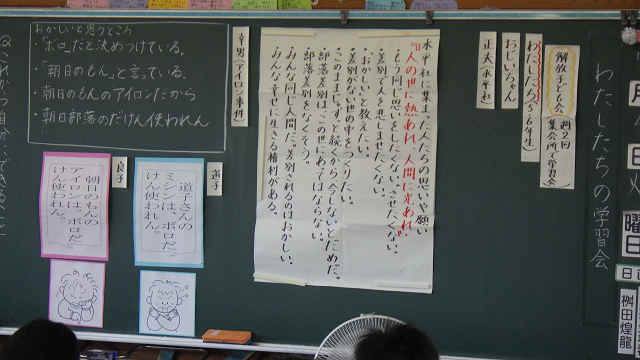 わたしたちの学習会
解放子ども会
週2回
集会所で学習会
わたしたち
5・6年生
おじいちゃん
正太
水平社
水平社に集まった人たちの思いや願い
『人の世に熱あれ、人間に光あれ。』
もう同じ思いをしたくない。させたくない。
差別で人を悲しませたくない。
おかしいと教えたい。
差別がない世の中をつくりたい。
このままでは、ずっと続くから今しないとだめだ。
部落差別は、この世にあってはならない。
部落差別をなくそう。
みんな同じ人間だ。差別されるのはおかしい。
みんな幸せに生きる権利がある。
幸男（アイロン事件）
おかしいと思うところ
・「ボロ」だと決めつけている。
・「朝日のもん」と言っている。
・朝日のもんのアイロンだから
・朝日部落のだけん使われん
道子
道子さんのミシンは、ボロだけん使われん。
良子
朝日のもんのアイロンは、ボロだけん使われん。
月
日
曜日
日直
桝田煌龍